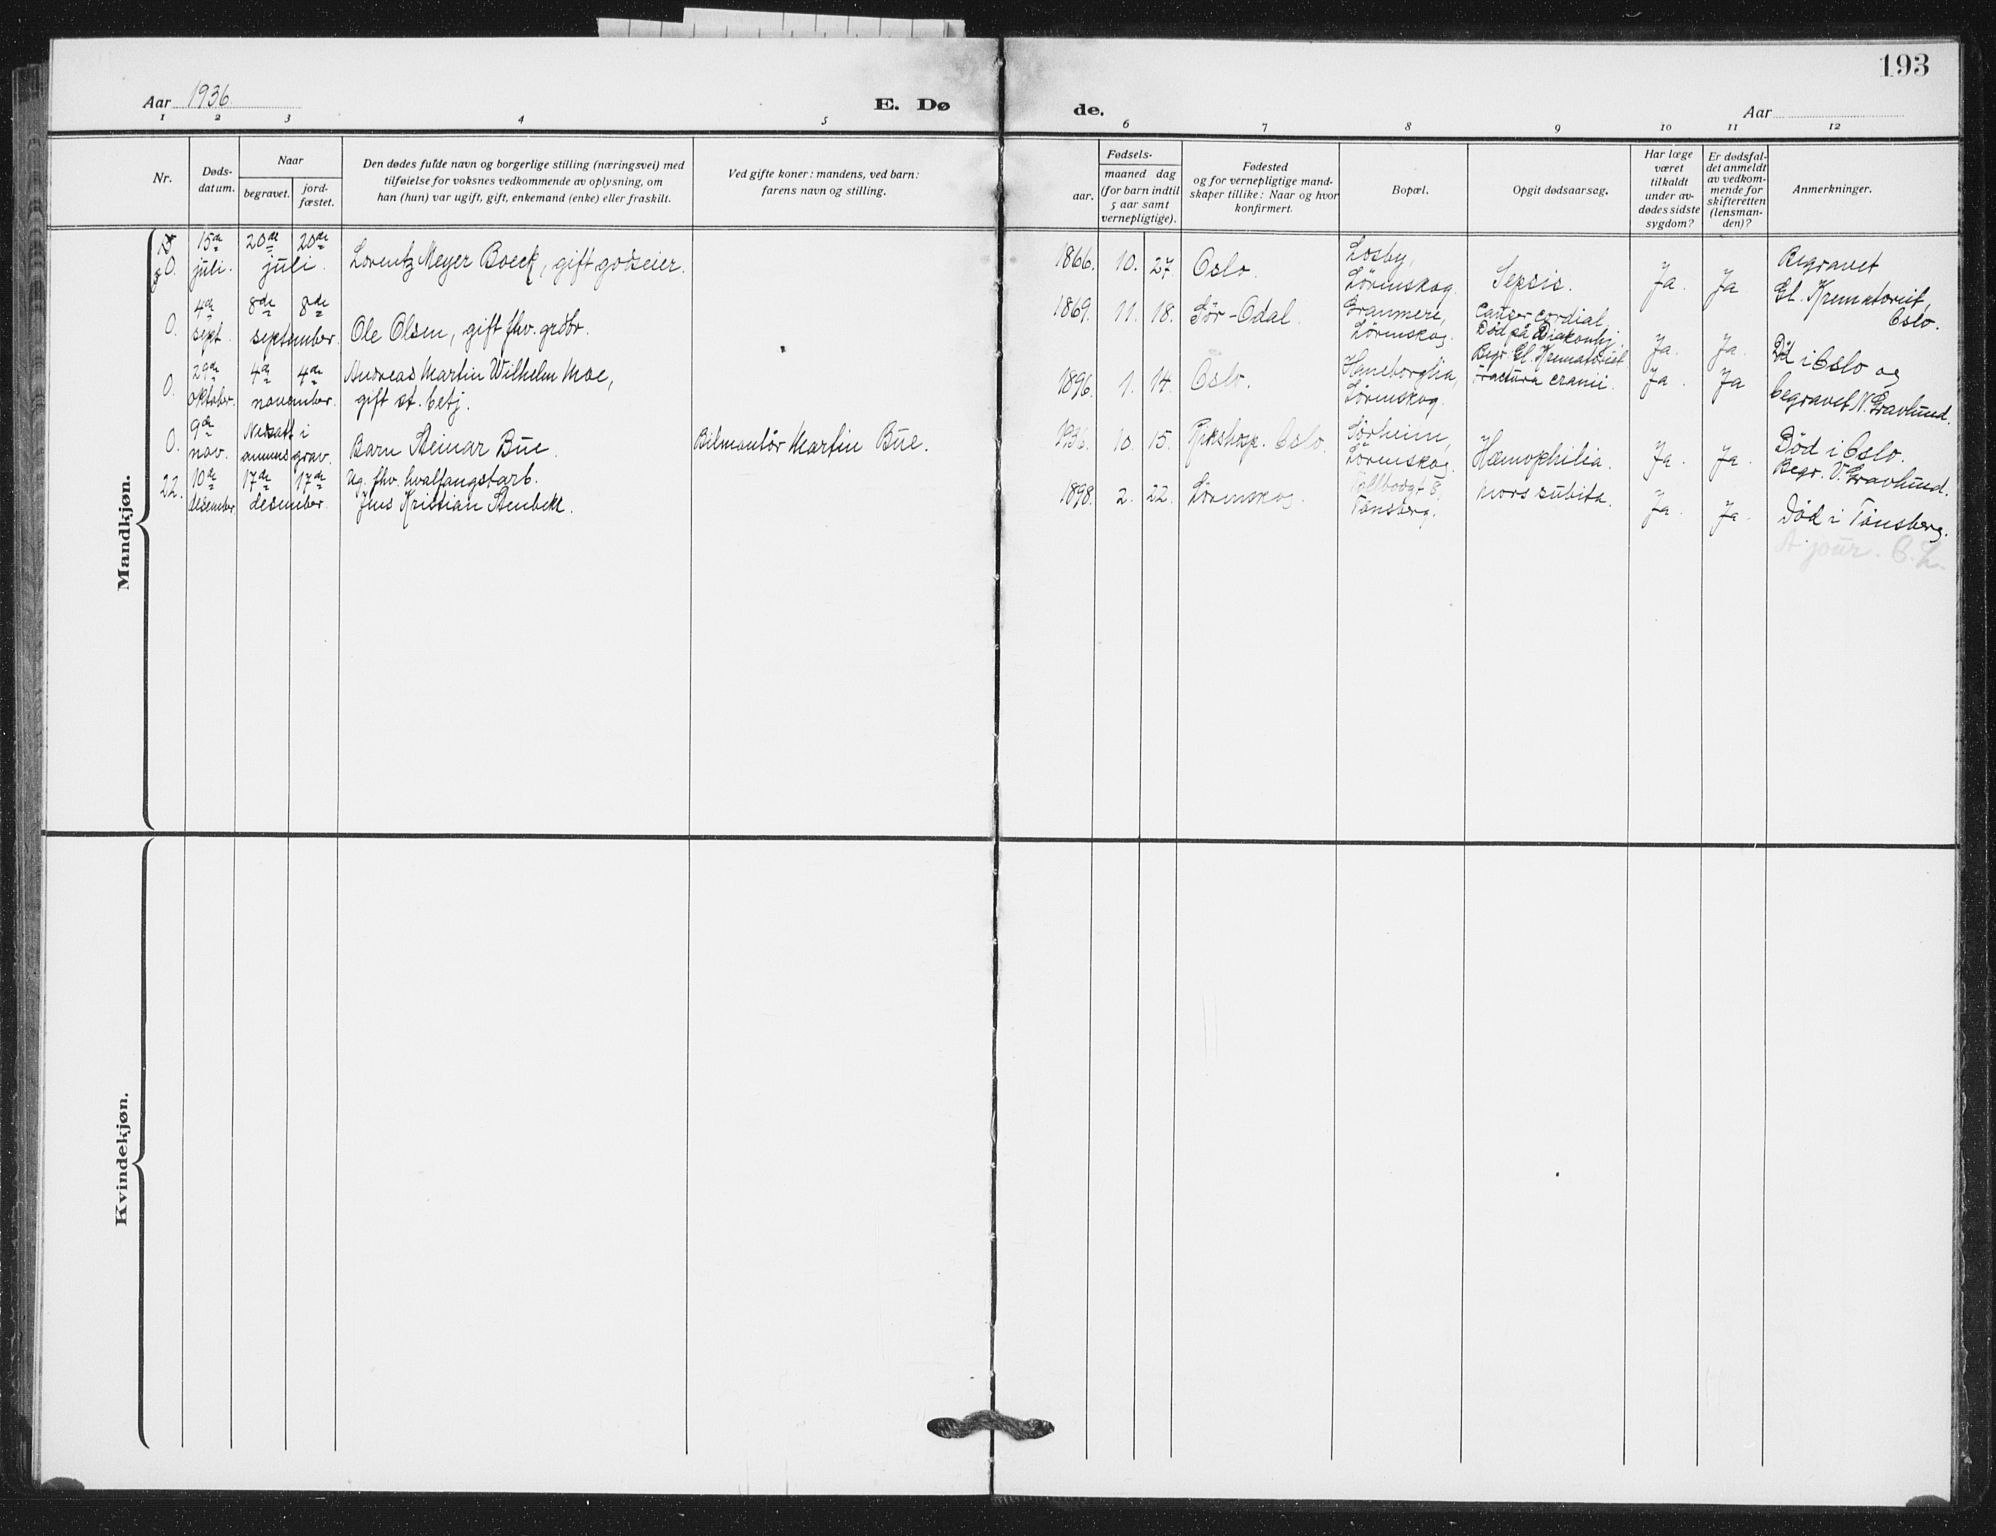 193
Aar 1936
E. Dø de.
Aar
1 2 3 4 5 6 7 8 9 10 11 12
Nr.
Døds-
datum.
Naar
begravet.
jord-
fæstet.
Den dødes fulde navn og borgerlige stilling (næringsvei) med
tilføielse for voksnes vedkommende av oplysning, om
han (hun) var ugift, gift, enkemand (enke) eller fraskilt.
Ved gifte koner: mandens, ved barn:
farens navn og stilling.
Fødsels-
aar.
maaned dag
(for barn indtil
5 aar samt
vernepligtige).
Fødested
og for vernepligtige mand-
skaper tillike: Naar og hvor
konfirmert.
Bopæl.
Opgit dødsaarsag.
Har læge
været
tilkaldt
under av-
dødes sidste
sygdom?
Er dødsfal-
det anmeldt
av vedkom-
mende for
skifteretten
(lensman-
den)?
Anmerkninger.
Mandkjøn.
0. 15de juli. 20de 20de juli.
Lorentz Meyer Boeck, gift godseier.
1866. 10. 27. Oslo.
Losby,
Lørenskog.
Sepsis. Ja. Ja
Begravet
Gl. Krematoriet,
Oslo.
0. 4de sept. 8de 8de september.
Ole Olsen, gift fhv. grdbr.
1869. 11. 18. Sør-Odal.
Granmere,
Lørenskog.
Cancer cordial,
Død på Diakonhj.
Begr. Gl. Krematoriet.
Ja. Ja.
0. 29de oktober. 4de 4de november.
Andreas Martin Wilhelm Moe,
gift st. betj.
1896. 1. 14. Oslo.
Haneborglia,
Lørenskog.
Fractura cranii. Ja. Ja
Død i Oslo og
begravet N. Gravlund.
0. 9de nov. Nedsatt i annens grav.
Barn Steinar Bue.
Bilmontør Martin Bue.
1936. 10. 15. Rikshosp. Oslo.
Sørheim,
Lørenskog.
Hæmophilia. Ja. Ja.
Død i Oslo.
Begr. V. Gravlund.
22. 10de desember. 17de 17de desember.
Ug. fhv. hvalfangstarb.
Jens Kristian Stenbekk.
1898. 2. 22. Lørenskog.
Tollbodgt 8,
Tønsberg.
Mors subita. Ja. Ja.
Død i Tønsberg.
A jour.
Kvindekjøn.